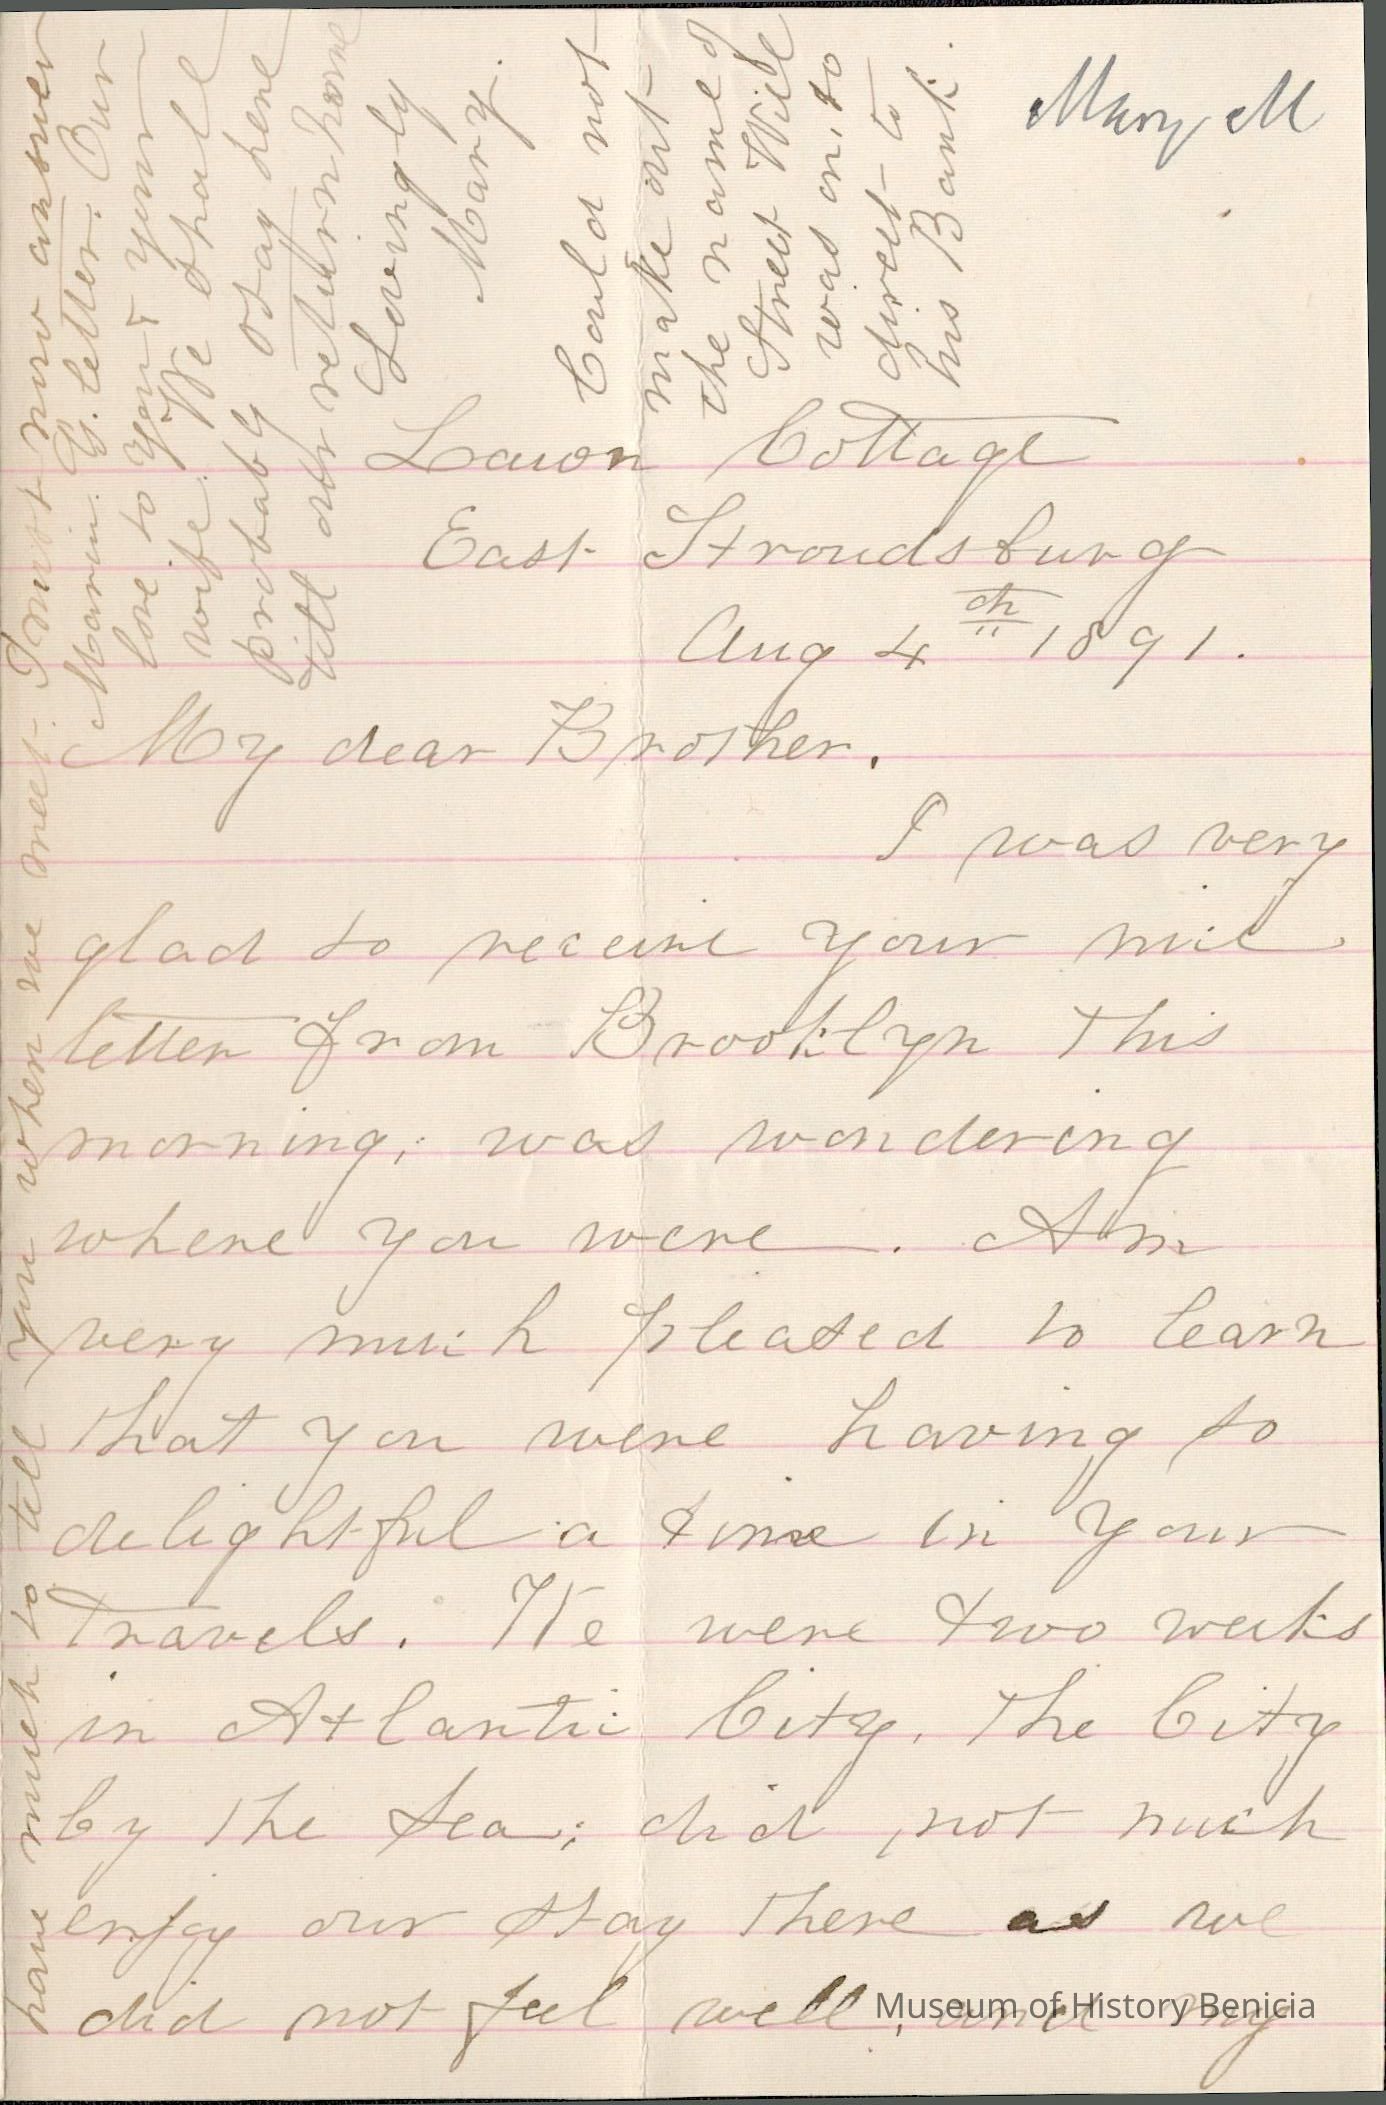 Mary M
Lawn Cottage
East Stroudsburg
Aug 4th 1891.
My dear Brother.
I was very
glad to receive your nice
letter from Brooklyn this
morning; was wondering
where you were. Am
very much pleased to learn
that you were having so
delightful a time in your
travels. We were two weeks
in Atlantic City. The City
by the Sea; did not much
enjoy our stay there as we
did not feel well, and my
have much to tell you when we meet. I must now answer
Marin. G. letter. Our
love to you & your
wife. We shall
probably stay here
till our return home
Lovingly
Mary.
Could not
make out
the name of
Street Will
was on, so
direct to
his Bank.
Museum of History Benicia